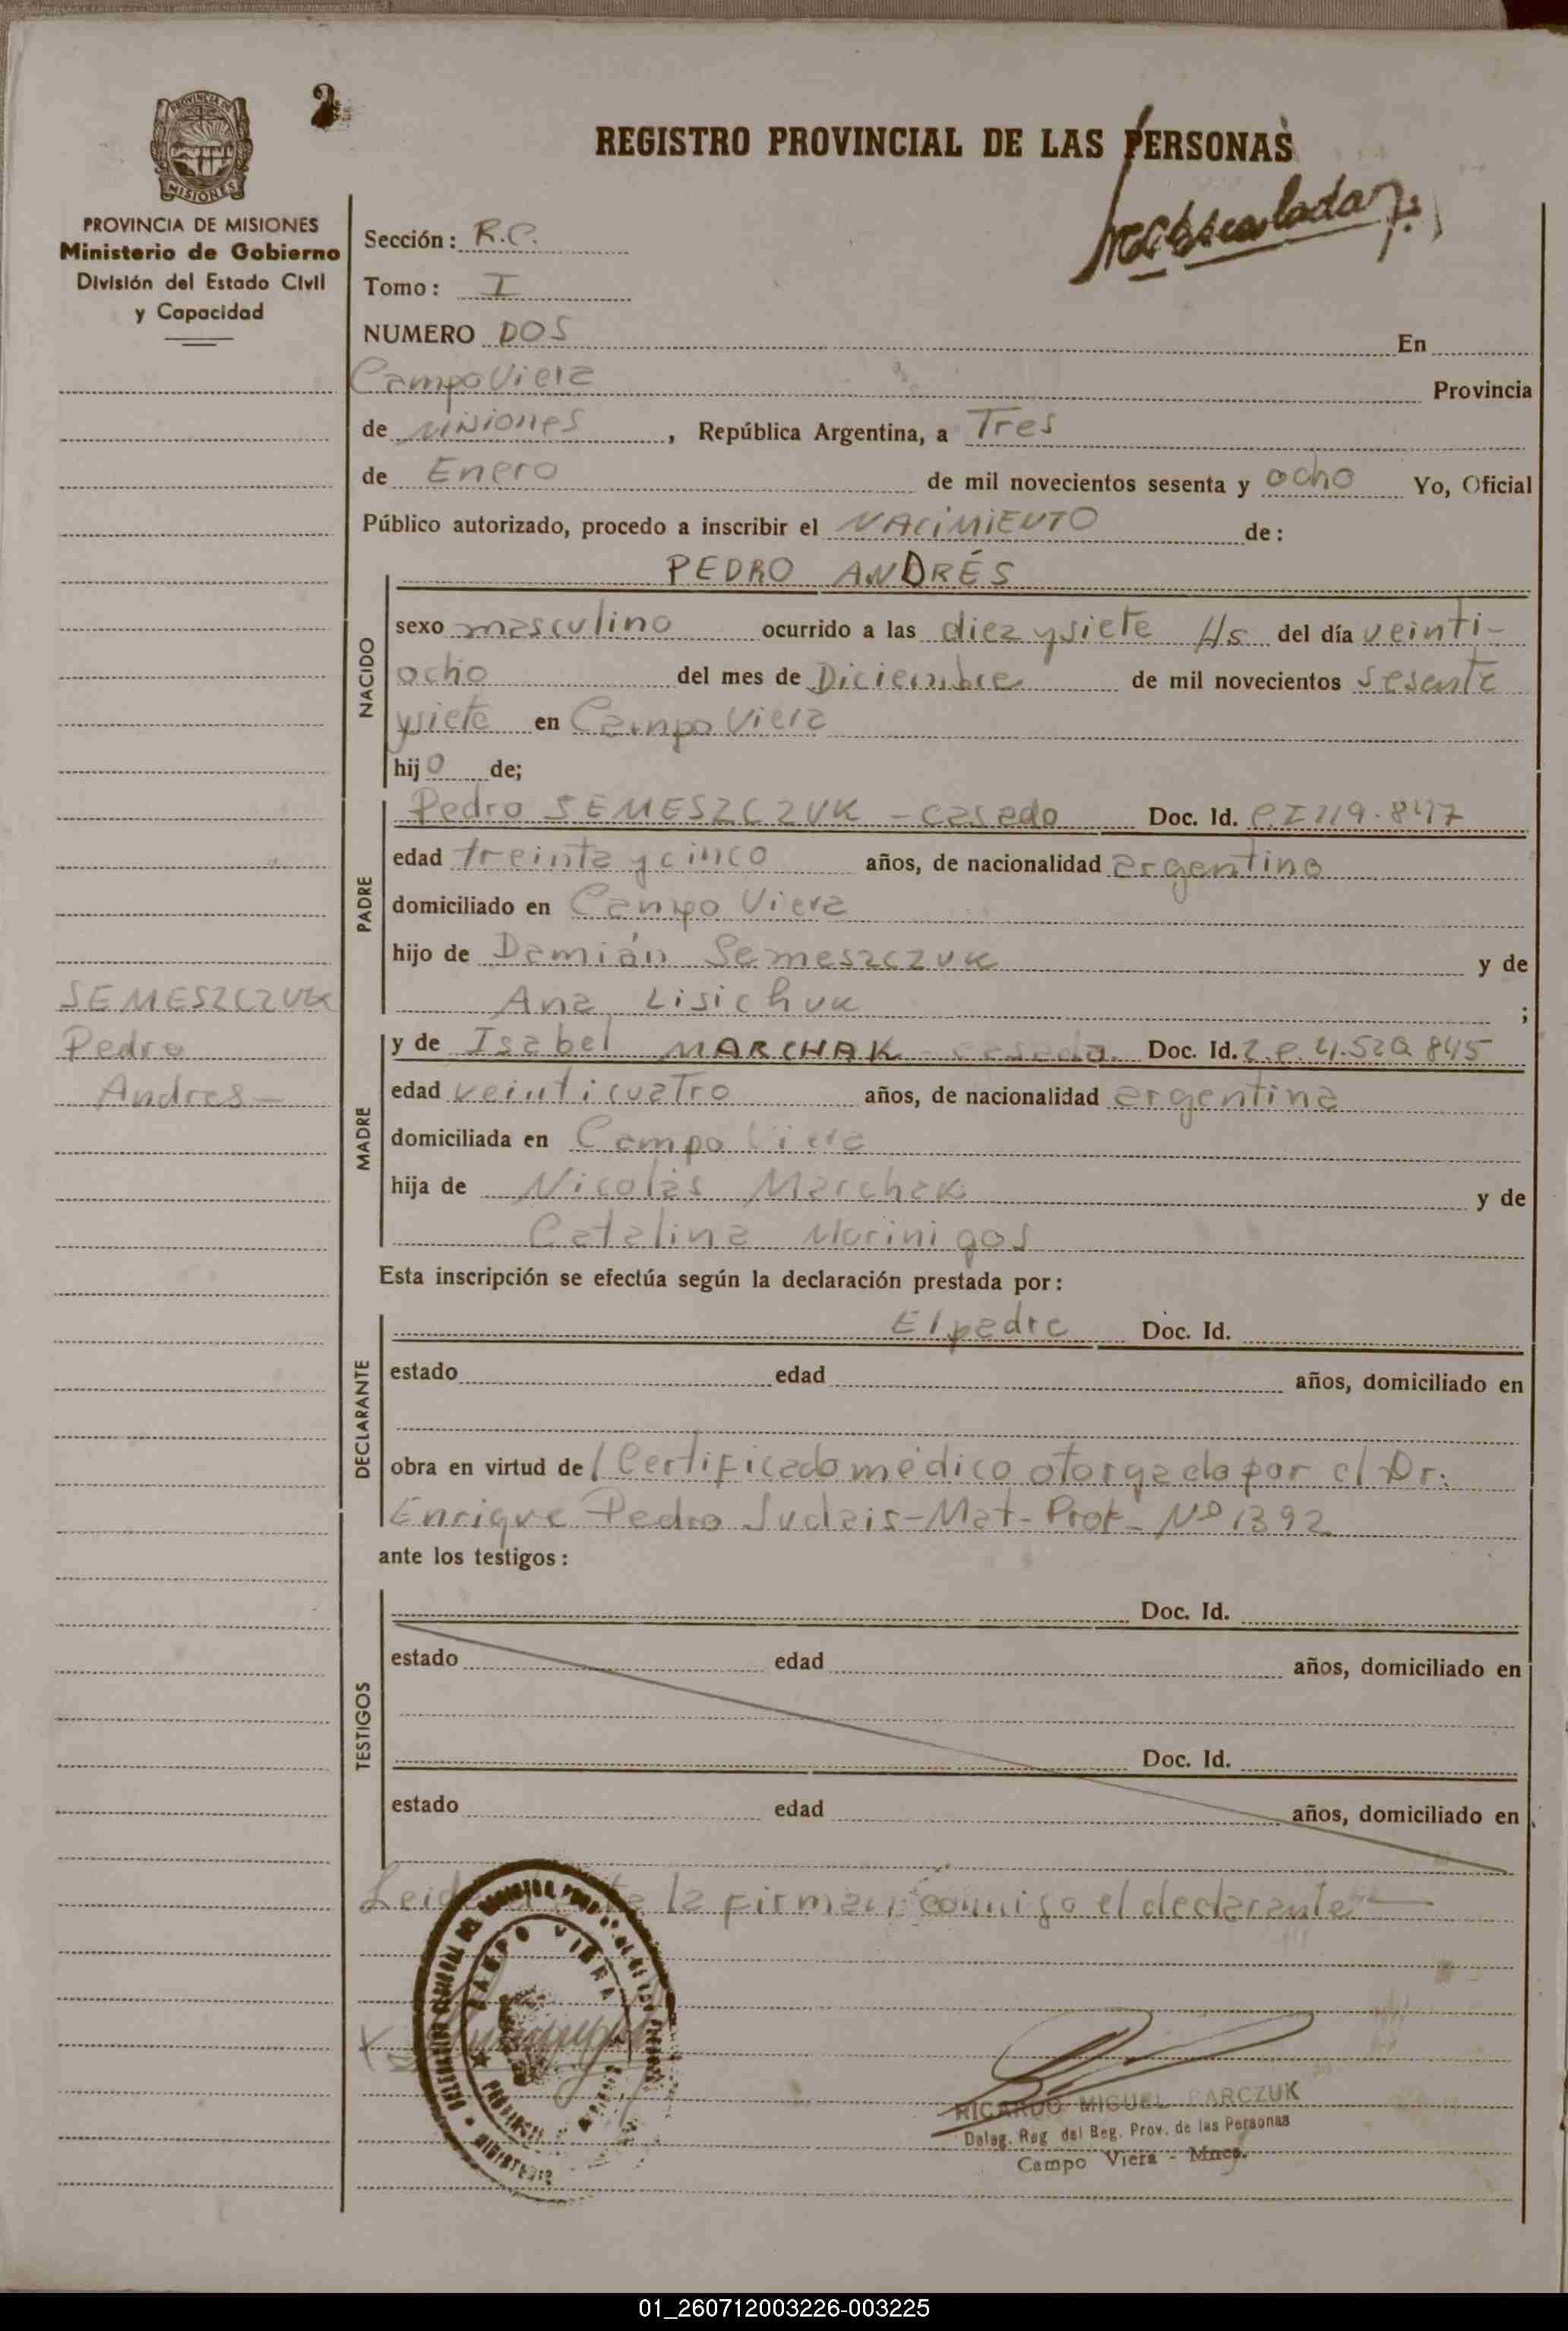 2
REGISTRO PROVINCIAL DE LAS PERSONAS
PROVINCIA DE
MISIONES
PROVINCIA DE MISIONES
Ministerio de Gobierno
División del Estado Civil
y Capacidad
Sección: R.C.
Tomo: I
NUMERO DOS En
Campo Viera Provincia
de Misiones, República Argentina, a Tres
de Enero de mil novecientos sesenta y ocho Yo, Oficial
Público autorizado, procedo a inscribir el NACIMIENTO de:
PEDRO ANDRÉS
NACIDO
sexo masculino ocurrido a las diez y siete Hs del día veinti-
ocho del mes de Diciembre de mil novecientos sesenta
y siete en Campo Viera
hijo de;
PADRE
Pedro SEMESZCZUK - casado Doc. Id. C.I 119.847
edad treinta y cinco años, de nacionalidad argentino
domiciliado en Campo Viera
hijo de Damián Semeszczuk y de
Ana Lisichuk ;
SEMESZCZUK
Pedro
Andres-
MADRE
y de Isabel MARCHAK - casada. Doc. Id. 4.520.845
edad veinticuatro años, de nacionalidad argentina
domiciliada en Campo Viera
hija de Nicolás Marchak y de
Catalina Morinigos
Esta inscripción se efectúa según la declaración prestada por:
DECLARANTE
El padre Doc. Id.
estado edad años, domiciliado en
obra en virtud del Certificado médico otorgado por el Dr.
Enrique Pedro Judais-Mat-Prof- Nº 1392
ante los testigos:
TESTIGOS
Doc. Id.
estado edad años, domiciliado en
Doc. Id.
estado edad años, domiciliado en
la firman conmigo el declarante-
CAMPO VIERA
RICARDO MIGUEL PARCZUK
Deleg. Reg del Reg. Prov. de las Personas
Campo Viera - Mnes.
01_260712003226-003225